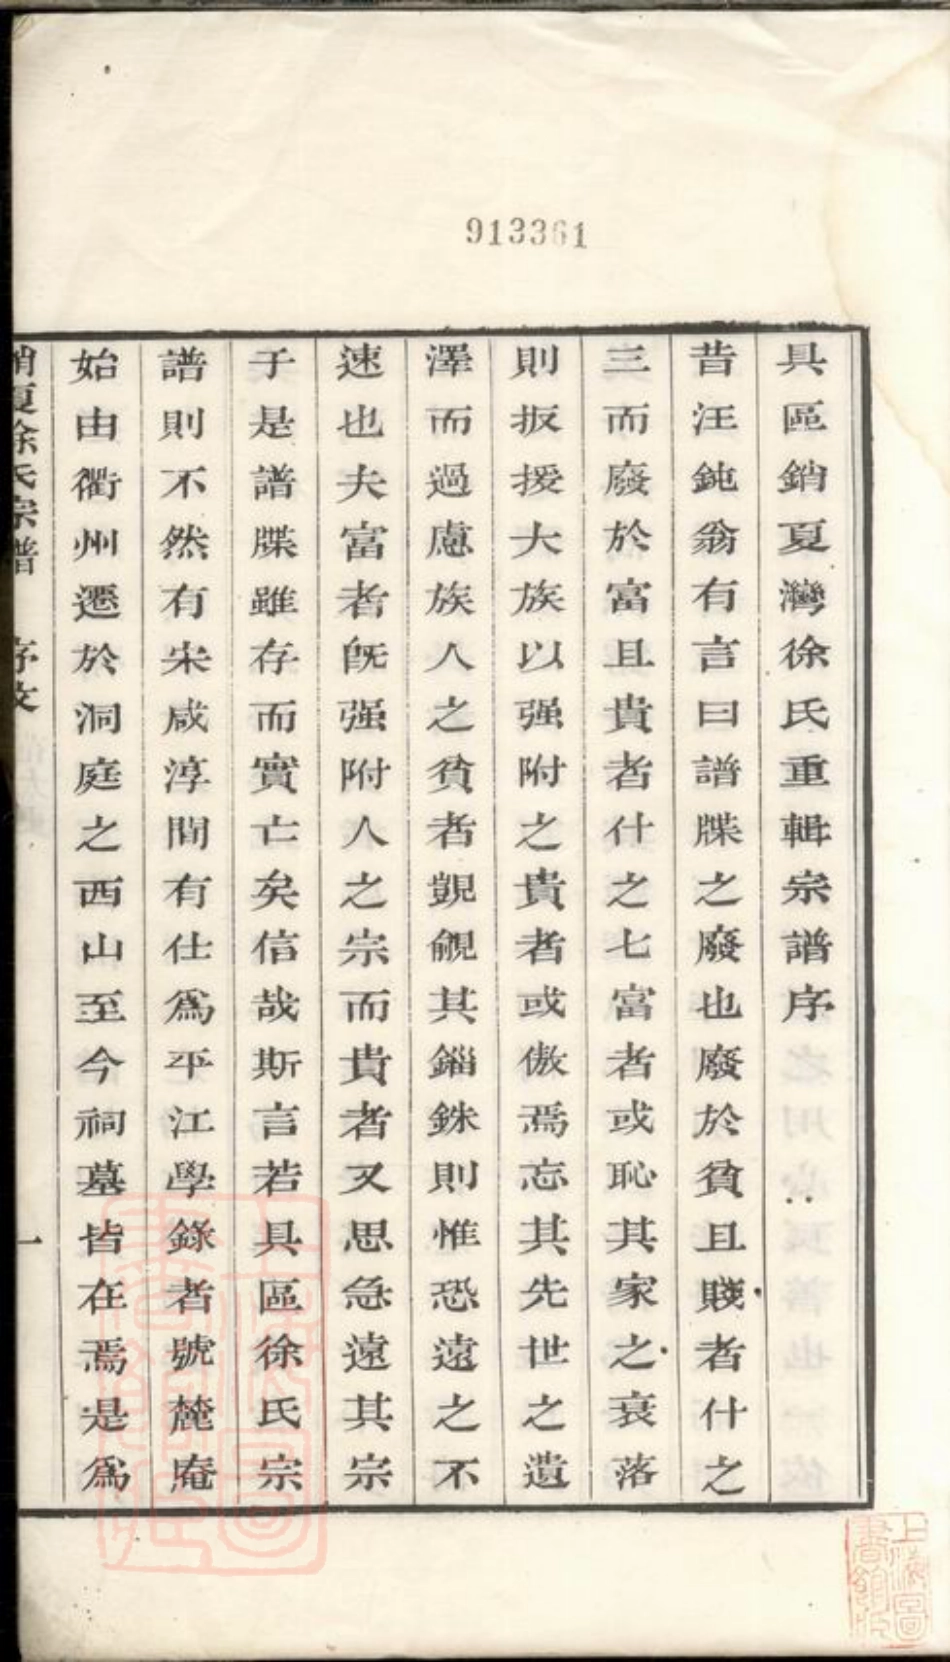 913361
具區銷夏灣徐氏重輯宗譜序
昔汪鈍翁有言曰譜牒之廢也廢於貧且賤者什之
三而廢於富且貴者什之七富者或恥其家之衰落
則扳援大族以强附之貴者或倣焉忘其先世之遺
澤而過慮族人之貧者覬覦其錙銖則惟恐遠之不
速也夫富者旣强附人之宗而貴者又思急遠其宗
于是譜牒雖存而實亡矣信哉斯言若具區徐氏宗
譜則不然有宋咸淳間有仕爲平江學錄者號麓庵
始由衢州遷於洞庭之西山至今祠墓皆在焉是爲
銷夏徐氏宗譜 序文 一
上海圖書館藏